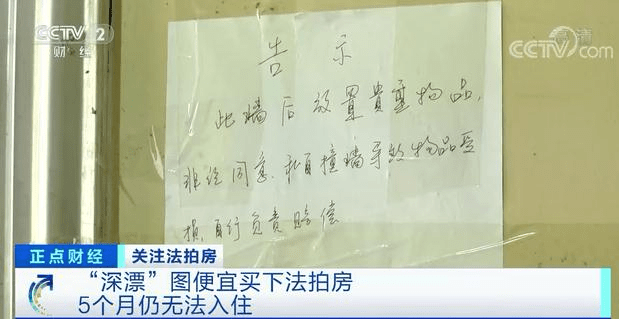 CCTV 2
财经
高清
CCTV.com
告示
此墙后放置貴重物品,
非经同意、私自撞墙导致物品受
损,自行负责赔偿
正点财经
关注法拍房
“深漂”图便宜买下法拍房
5个月仍无法入住